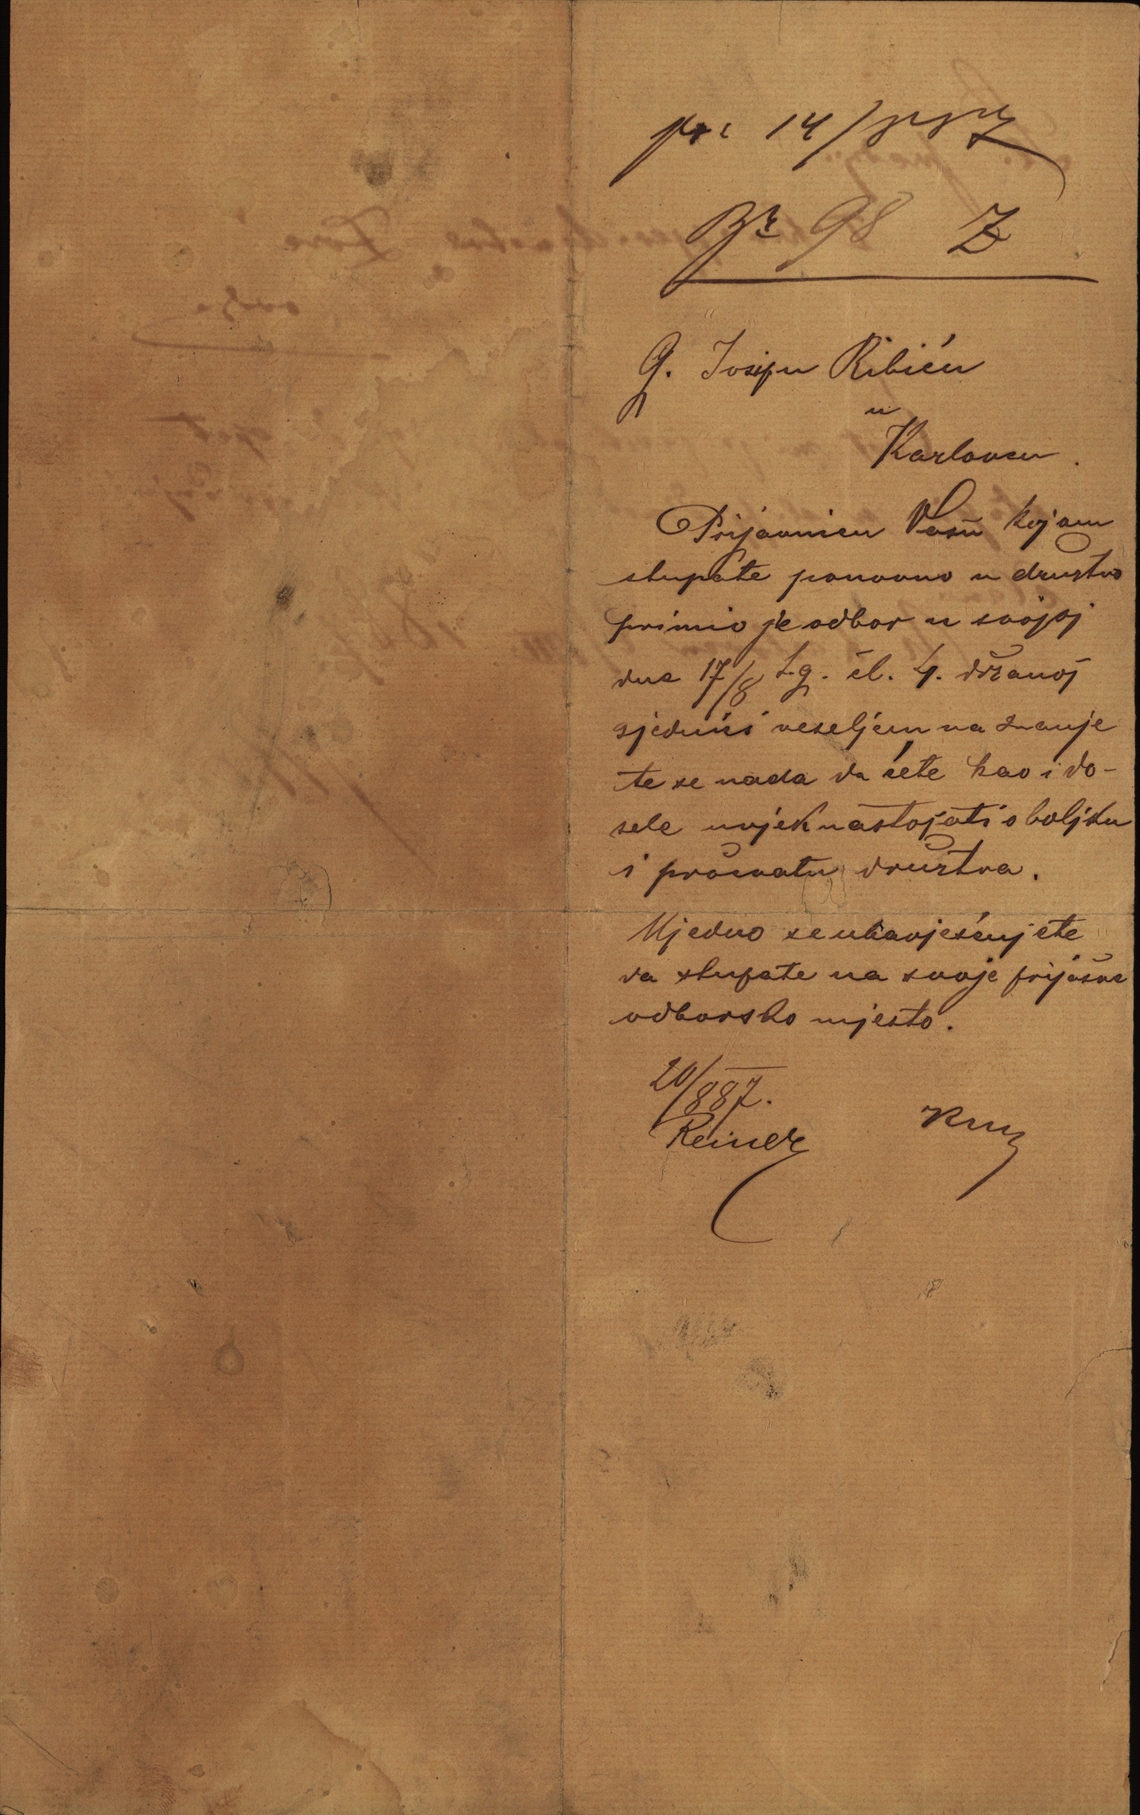 pr 14/8 887
Br 98 Z
G. Josipu Ribiću
u
Karlovcu.
Prijavnicu Vašu kojom
stupate ponovno u družtvo
primio je odbor u svojoj
dne 17/8 t.g. čl. 4. držanoj
sjednici veseljem na znanje
te se nada da ćete kao i do-
sele uvjek nastojati o boljku
i procvatu družtva.
Ujedno se ubavješćujete
da stupate na svoje prijašne
odborsko mjesto.
20/8 87.
Reiner